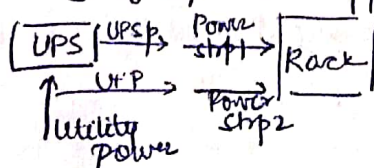 UPS
UPS P
Power
strip1
Rack
UtP
Power
strp2
Utility
power